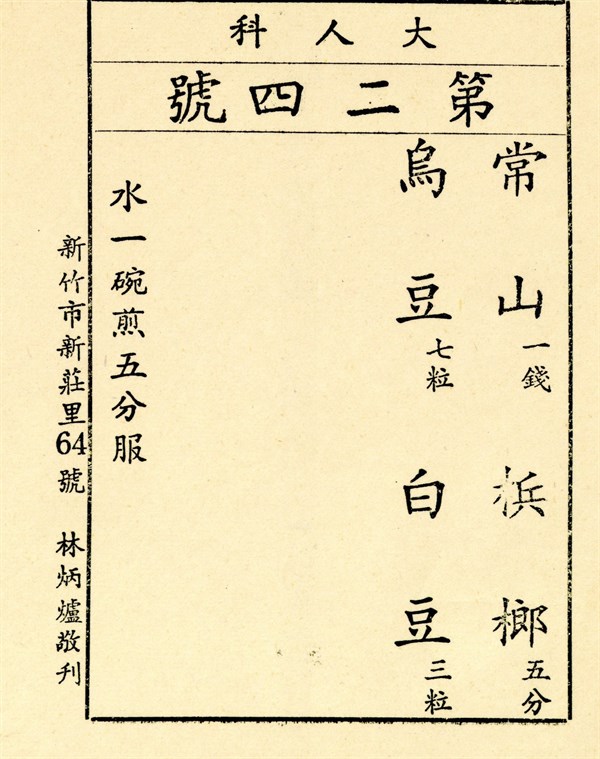 大人科
第二四號
常山一錢 梹榔五分
烏豆七粒 白豆三粒
水一碗煎五分服
新竹市新莊里64號 林炳爐敬刊